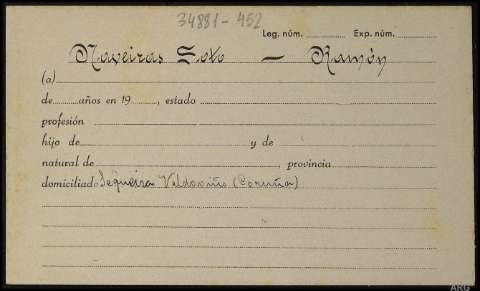 34881-452
Leg. núm. Exp. núm.
Naveiras Soto — Ramón
(a)
de años en 19 , estado
profesión
hijo de y de
natural de , provincia
domiciliado Sequeiro Valdoviño (Coruña)
ARG